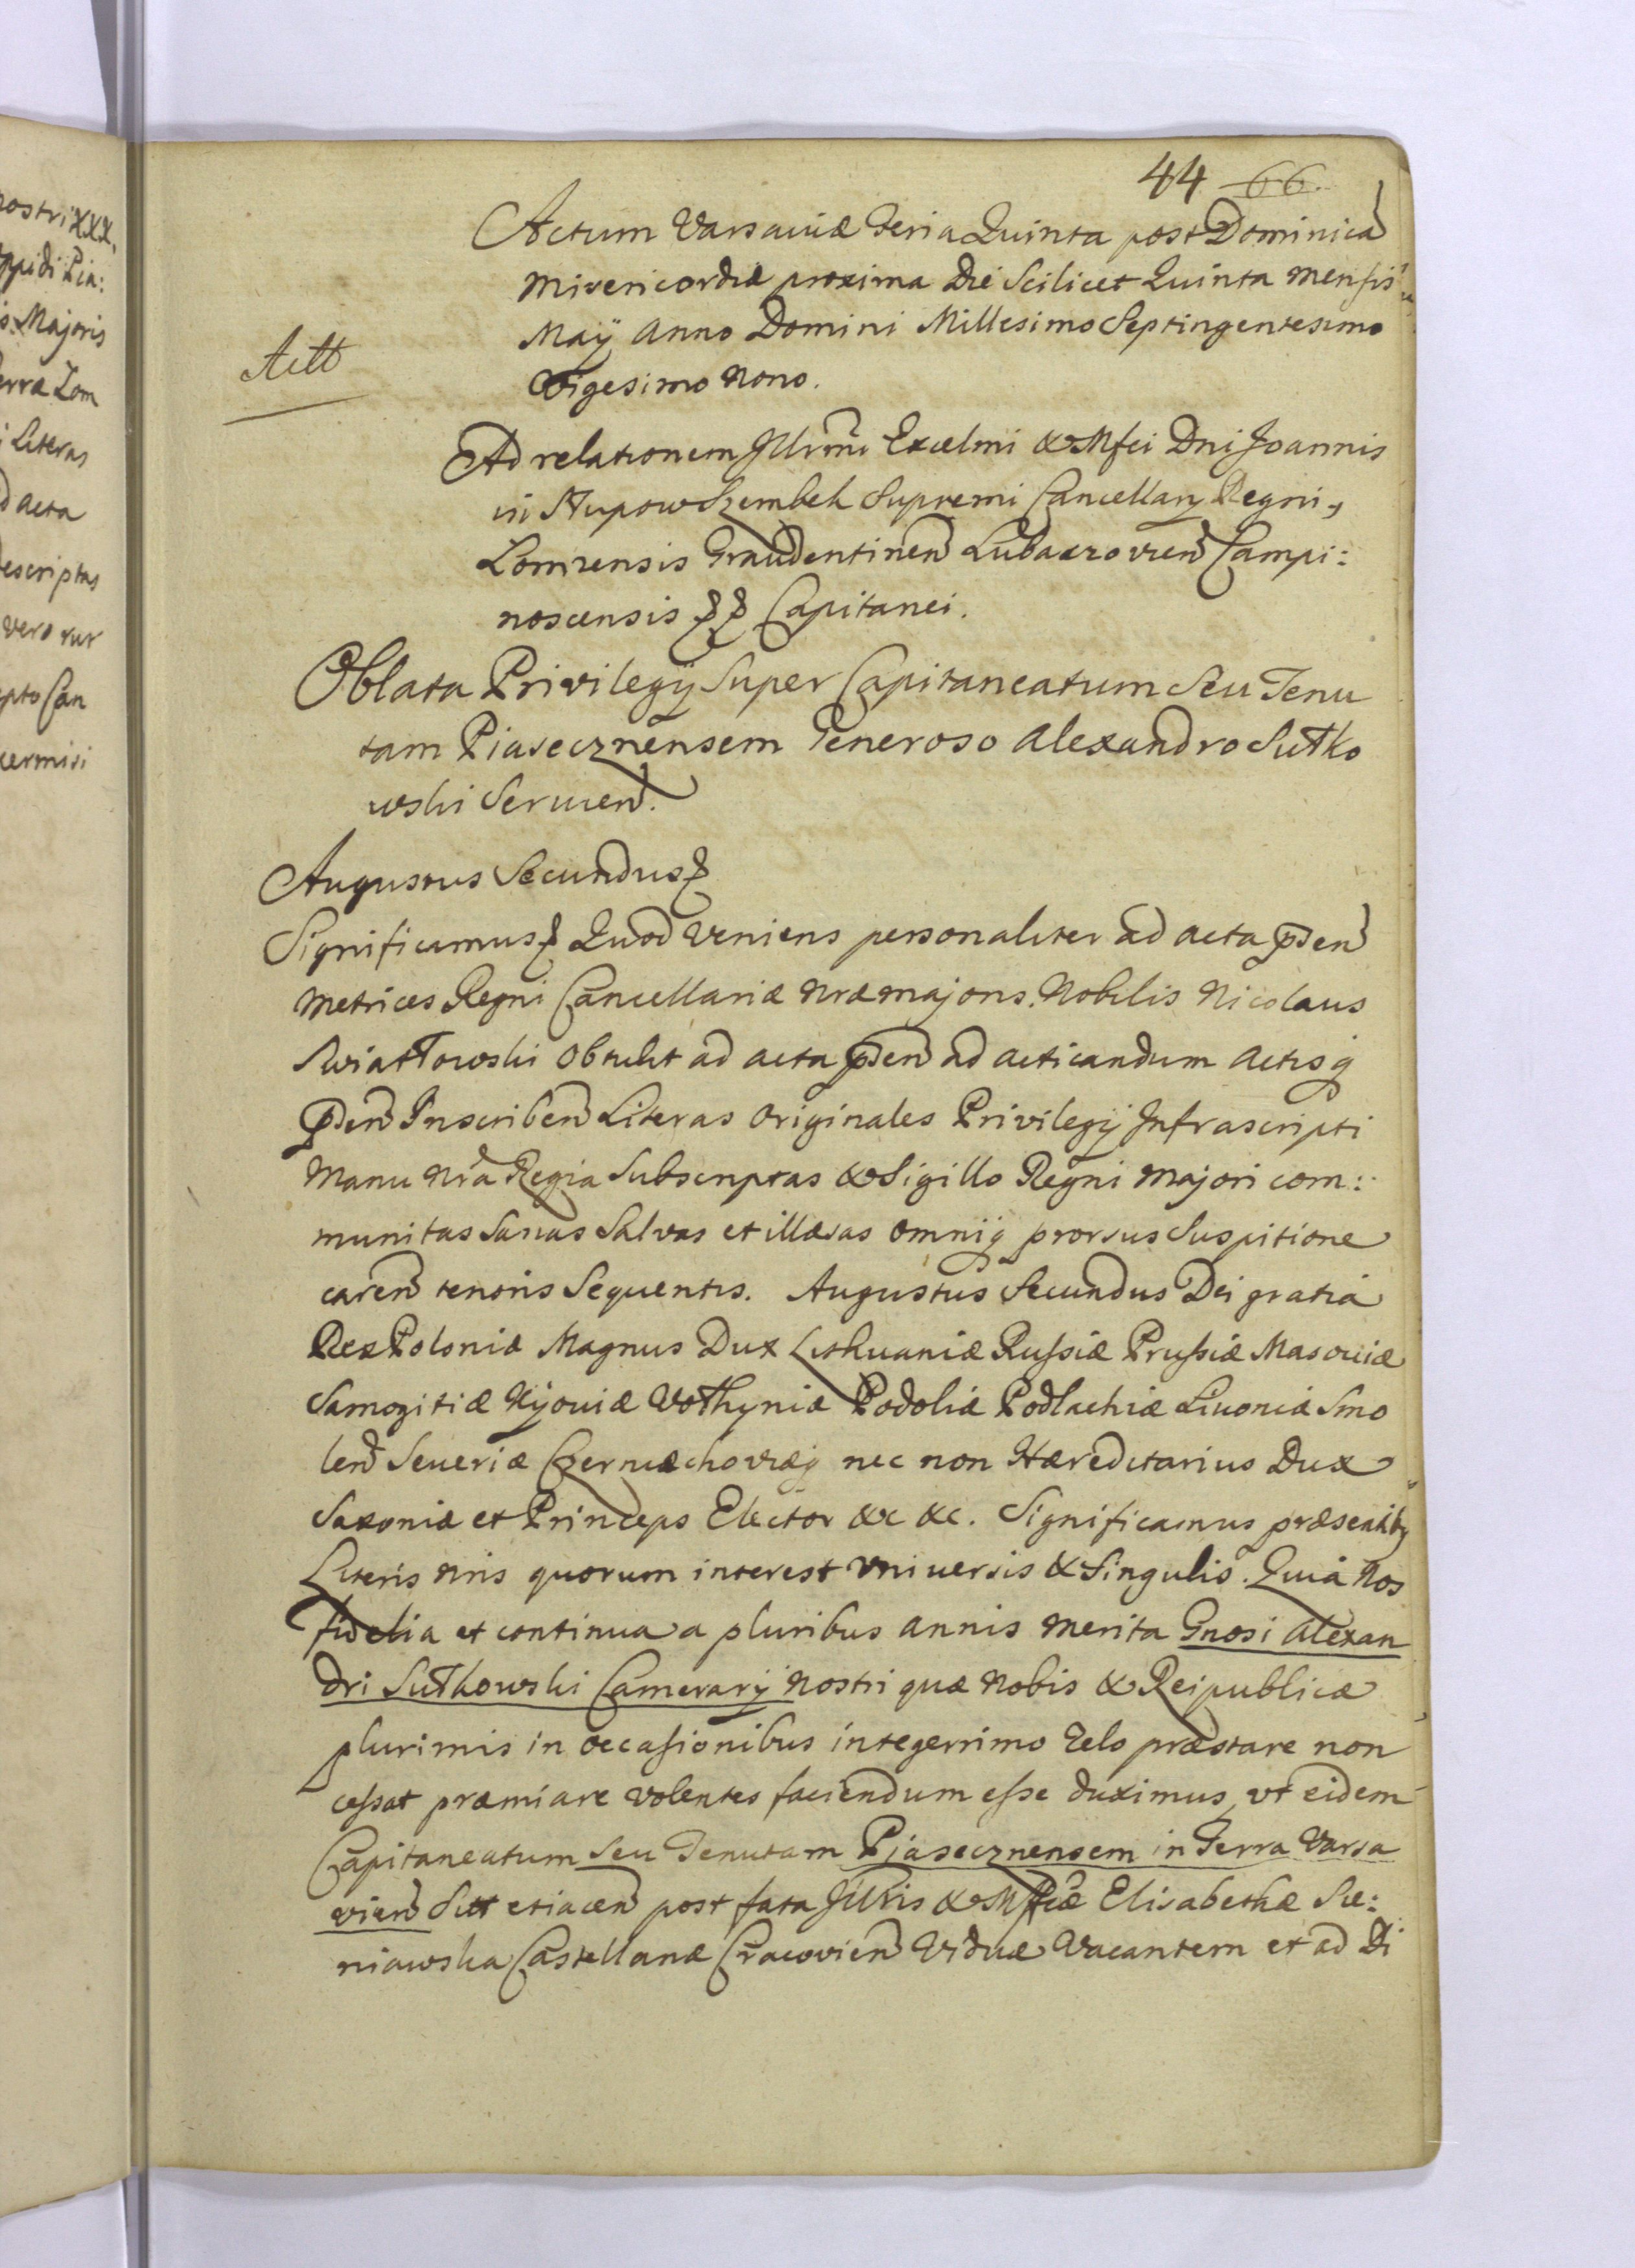 44 66.
Actum Varsaviæ Feria Quinta post Dominicā
Misericordiæ proxima Die Scilicet Quinta Mensis
Maÿ Anno Domini Millesimo Septingentesimo
Vigesimo Nono.
Actt
Ad relationem Jllrmi Excelmi & Mfci Dni Joannis
in Słupow Szembek Supremi Cancellarÿ Regni,
Lomzensis Graudentinen Lubaczovien Campi:
noscensis Capitanei.
Oblata Privilegÿ Super Capitaneatum Seu Tenu
tam Piasecznensem Generoso Alexandro Sułko
wski Servien.
Augustus Secundus
Significamus Quod Veniens personaliter ad acta pden
Metrices Regni Cancellariæ nræ majoris. Nobilis Nicolaus
Swiatłowski Obtulit ad acta pden ad acticandum Actisq
pden Inscriben Literas Originales Privilegÿ Infrascripti
Manu Nra Regia Subscriptas & Sigillo Regni Majori com:
munitas Sanas Salvas et illæsas omniq prorsus Suspitione
caren tenoris Sequentis. Augustus Secundus Dei gratia
Rex Poloniæ Magnus Dux Lithuaniæ Russiæ Prussiæ Masoviæ
Samogitiæ Kÿoviæ Vołhyniæ Podoliæ Podlachiæ Livoniæ Smo
len Severiæ Czerniæchoviæq nec non Hæreditarius Dux
Saxoniæ et Princeps Elector &c &c. Significamus præsentibq
Literis nris quorum interest Universis & Singulis. Quia Nos
fidelia et continua a pluribus annis merita Gnosi Alexan
dri Sułkowski Camerarÿ Nostri quæ Nobis & Reipublicæ
plurimis in occasionibus integerrimo Zelo præstare non
cessat præmiare Volentes faciendum esse duximus, ut eidem
Capitaneatum Seu Tenutam Piasecznensem in Terra Varsa
vien Sitt etiacen post fata Jllris & Mfcæ Elisabethæ Sie:
niawska Castellanæ Cracovien Viduæ Vacantem et ad Di
nostri XXX.
ppidi Pia:
s. Majoris
erræ Lom
i Literas
d acta
escriptas
vero rur
pto Can
cermisi